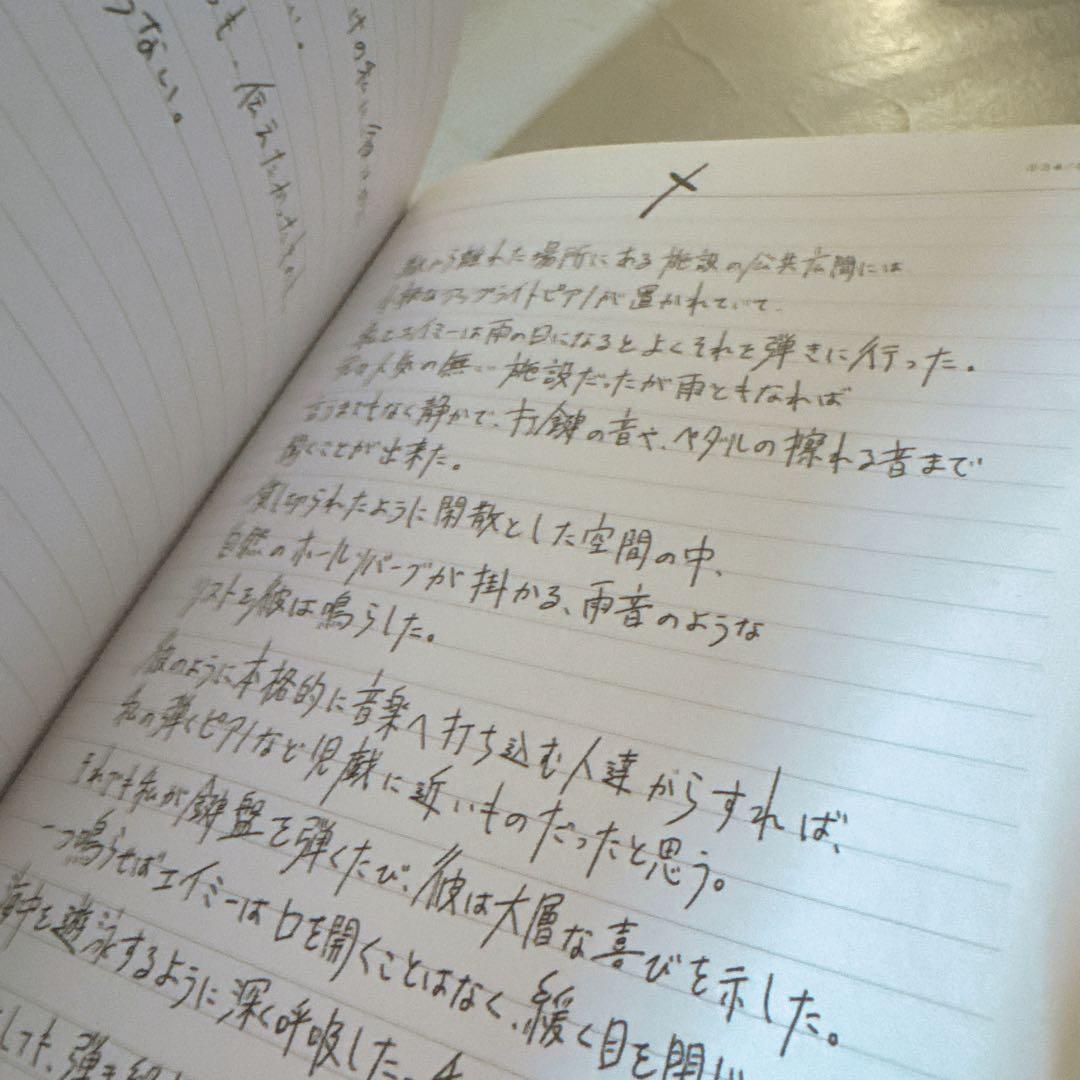 から離れた場所にある施設の公共広間には
アップライトピアノが置かれていて、
私とエイミーは雨の日になるとよくそれを弾きに行った。
人気の無い施設だったが雨ともなれば
言うまでもなく静かで、打鍵の音や、ペダルの擦れる音まで
聞くことが出来た。
切られたように閑散とした空間の中、
自然のホールリバーブが掛かる、雨音のような
リストを彼は鳴らした。
彼のように本格的に音楽へ打ち込む人達からすれば、
私の弾くピアノなど児戯に近いものだったと思う。
それでも私が鍵盤を弾くたび、彼は大層な喜びを示した。
一つ鳴らせばエイミーは口を開くことはなく、緩く目を閉じ
海中を遊泳するように深く呼吸した。
しても、弾き